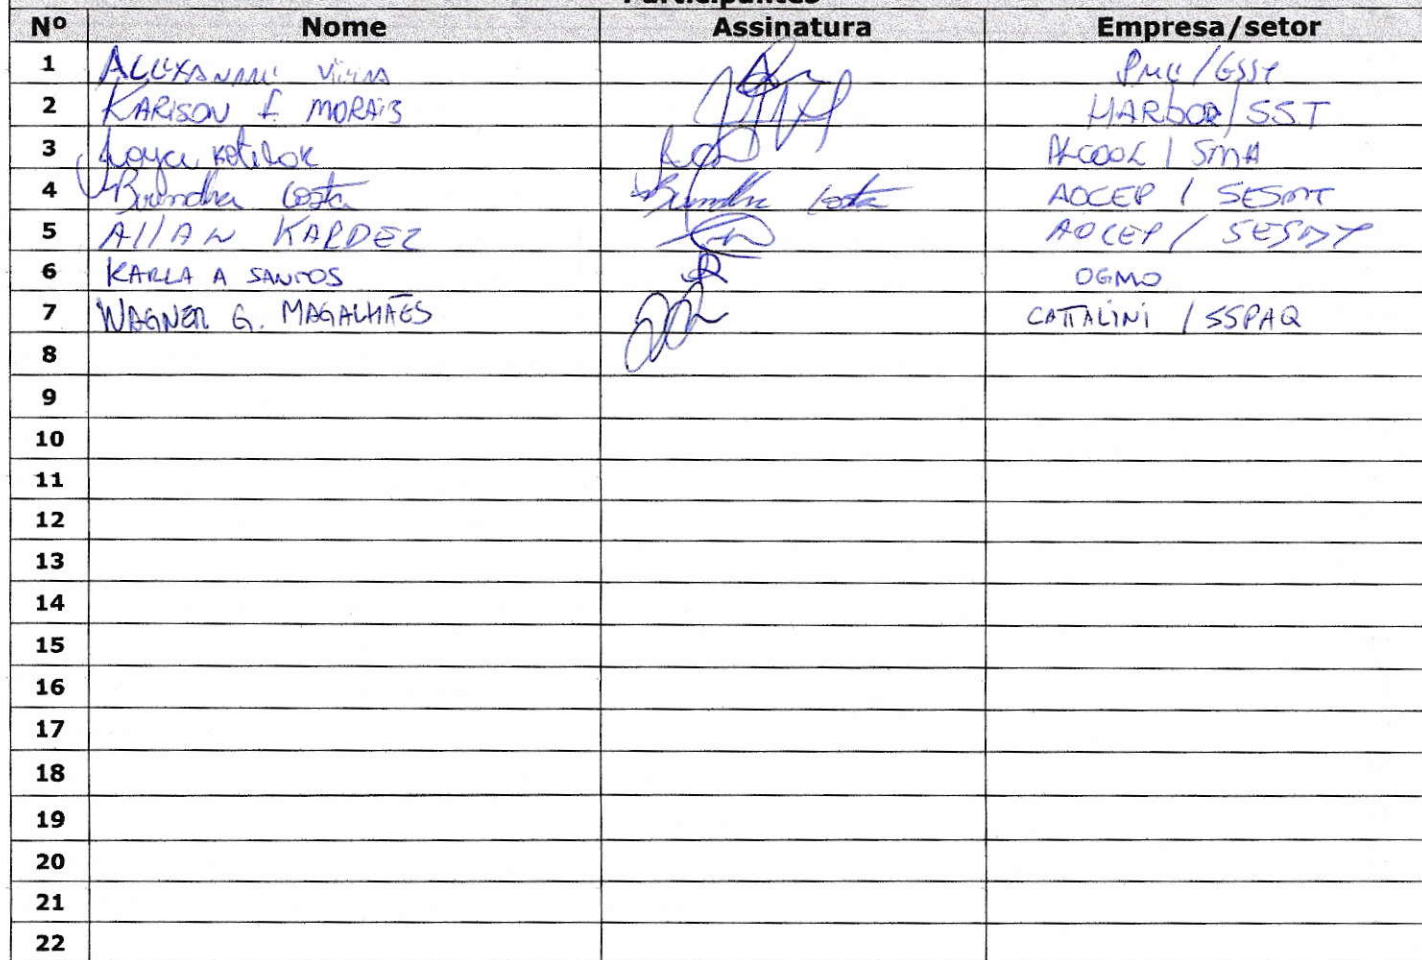 Participantes
Nº Nome Assinatura Empresa/setor
1 ALEXANDRE VIEIRA
2 KARISON F. MORAIS HARBOR/SST
3 ALCOOL / SMA
4 Brendha Costa Brendha Costa AOCEP / SESMT
5 AllAN KARDEZ AOCEP / SESMT
6 KARLA A SANTOS OGMO
7 WAGNER G. MAGALHÃES CATTALINI / SSPAQ
8
9
10
11
12
13
14
15
16
17
18
19
20
21
22